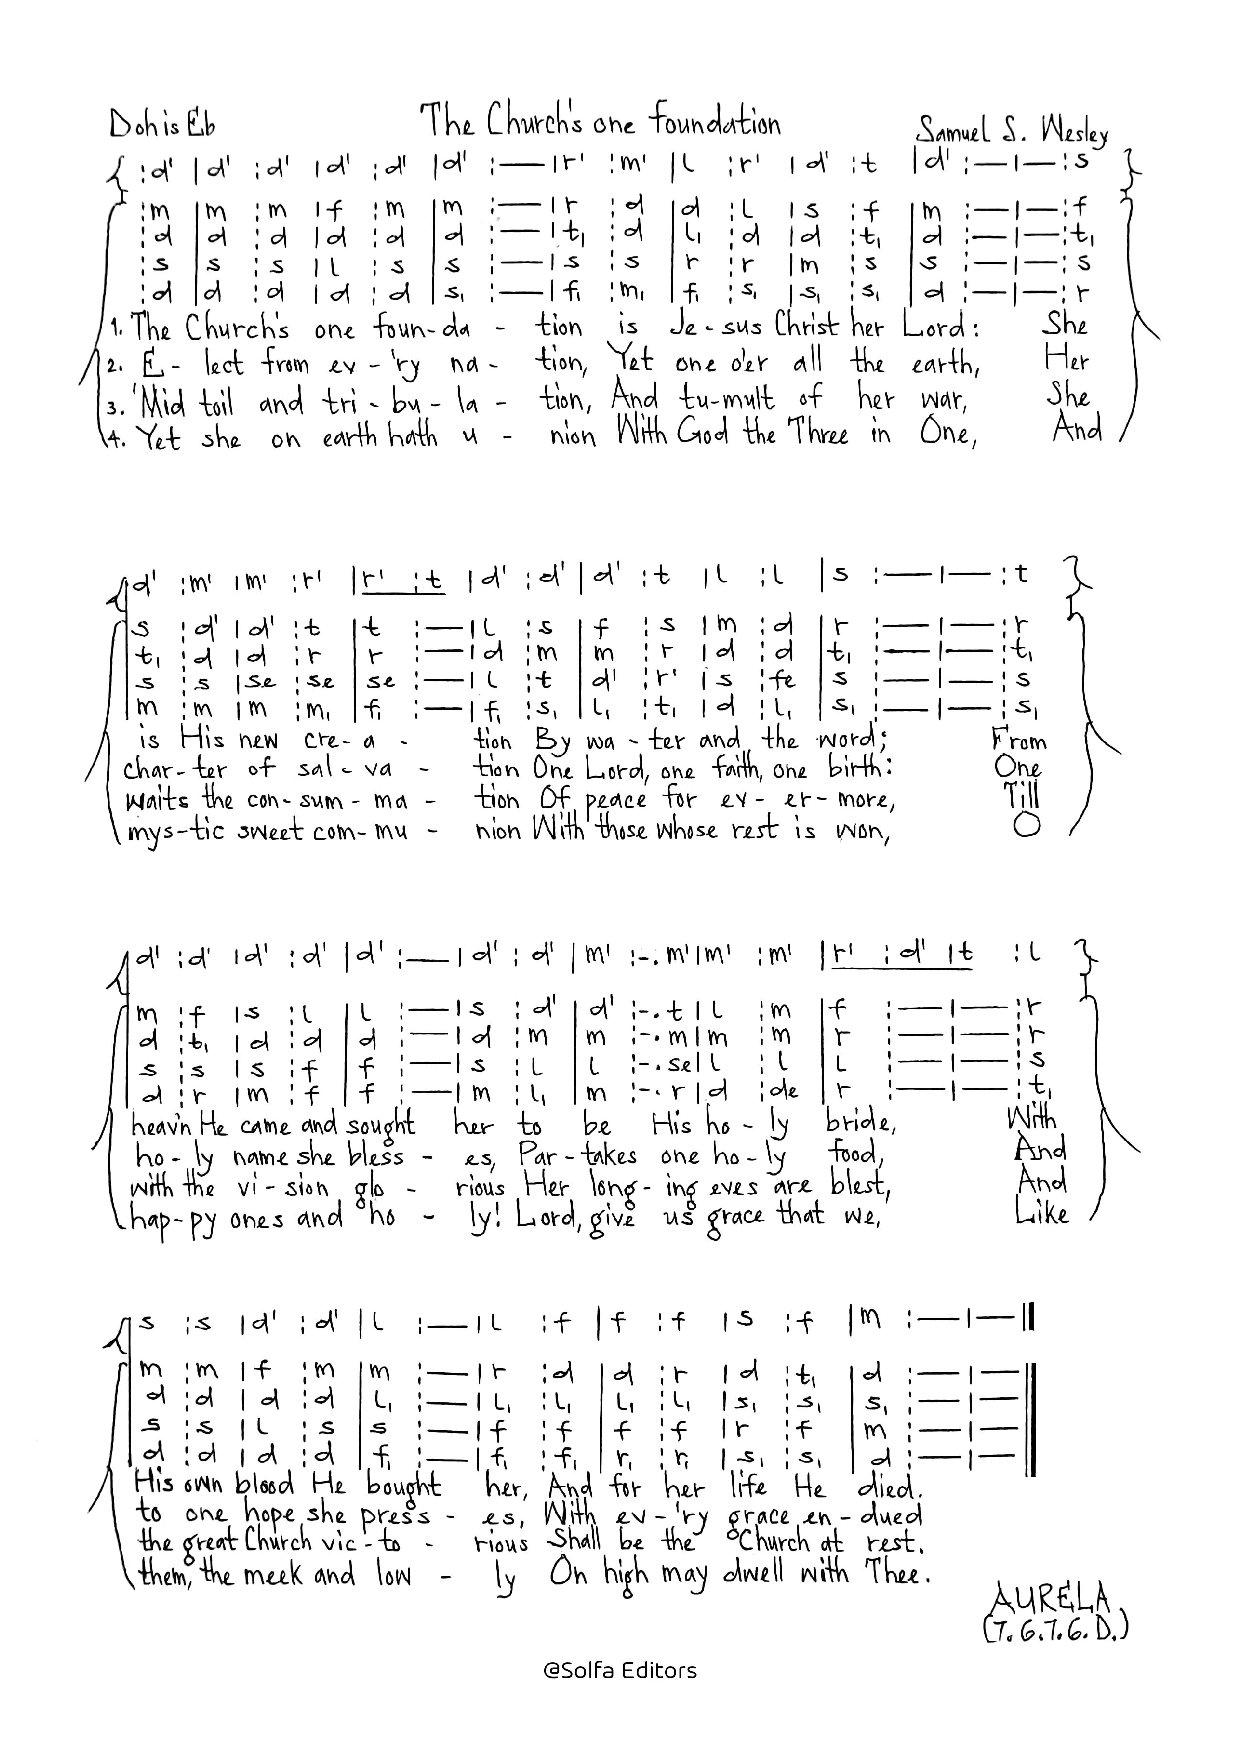 Doh is Eb
The Church's one foundation
Samuel S. Wesley
:d' |d' :d' |d' :d' |d' :— |r' :m' |l :r' |d' :t |d' :—|—:s
:m |m :m |f :m |m :— |r :d |d :l |s :f |m :—|—:f
:d |d :d |d :d |d :— |t₁ :d |l₁ :d |d :t₁ |d :—|—:t₁
:s |s :s |l :s |s :— |s :s |r :r |m :s |s :—|—:s
:d |d :d |d :d |s₁ :— |f₁ :m₁ |f₁ :s₁ |s₁ :s₁ |d :—|—:r
1. The Church's one foun-da - tion is Je-sus Christ her Lord: She
2. E - lect from ev-'ry na - tion, Yet one o'er all the earth, Her
3. 'Mid toil and tri-bu-la - tion, And tu-mult of her war, She
4. Yet she on earth hath u - nion With God the Three in One, And
d' :m' |m' :r' |r' :t |d' :d' |d' :t |l :l |s :—|—:t
s :d' |d' :t |t :— |l :s |f :s |m :d |r :—|—:r
t₁ :d |d :r |r :— |d :m |m :r |d :d |t₁ :—|—:t₁
s :s |se :se |se :— |l :t |d' :r' |s :fe |s :—|—:s
m :m |m :m₁ |f₁ :— |f₁ :s₁ |l₁ :t₁ |d :l₁ |s₁ :—|—:s₁
is His new cre-a - tion By wa-ter and the word; From
char-ter of sal-va - tion One Lord, one faith, one birth: One
waits the con-sum-ma - tion Of peace for ev-er-more, Till
mys-tic sweet com-mu - nion With those whose rest is won, O
d' :d' |d' :d' |d' :— |d' :d' |m' :-.m'|m' :m' |r' :d' |t :l
m :f |s :l |l :— |s :d' |d' :-.t |l :m |f :—|—:r
d :t₁ |d :d |d :— |d :m |m :-.m|m :m |r :—|—:r
s :s |s :f |f :— |s :l |l :-.se|l :l |l :—|—:s
d :r |m :f |f :— |m :l₁ |m :-.r |d :de |r :—|—:t₁
heav'n He came and sought her to be His ho-ly bride, With
ho-ly name she bless - es, Par-takes one ho-ly food, And
with the vi-sion glo - rious Her long-ing eyes are blest, And
hap-py ones and ho - ly! Lord, give us grace that we, Like
s :s |d' :d' |l :— |l :f |f :f |s :f |m :—|—||
m :m |f :m |m :— |r :d |d :r |d :t₁ |d :—|—||
d :d |d :d |l₁ :— |l₁ :l₁ |l₁ :l₁ |s₁ :s₁ |s₁ :—|—||
s :s |l :s |s :— |f :f |f :f |r :f |m :—|—||
d :d |d :d |f₁ :— |f₁ :f₁ |r₁ :r₁ |s₁ :s₁ |d :—|—||
His own blood He bought her, And for her life He died.
to one hope she press - es, With ev-'ry grace en-dued
the great Church vic-to - rious Shall be the Church at rest.
them, the meek and low - ly On high may dwell with Thee.
AURELA
(7.6.7.6.D.)
@Solfa Editors